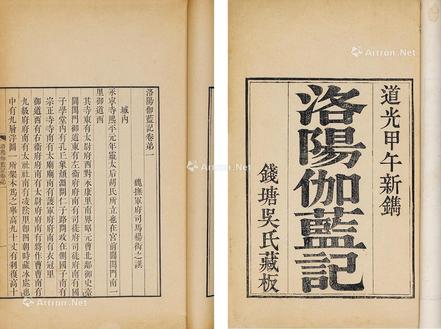 道光甲午新鐫
洛陽伽藍記
錢塘吳氏藏板
洛陽伽藍記卷第一
魏撫軍府司馬楊衒之撰
城內
永寧寺熙平元年靈太后胡氏所立也在宮前閶闔門南一
里御道西
其寺東有太尉府西對永康里南界昭元曹北鄰御史臺
閶闔門前御道東有左衛府府南有司徒府司徒府南有國
子學堂內有孔丘象顏淵問仁子路問政在側國子南有
宗正寺寺南有太廟廟南有護軍府府南有衣冠里
御道西有右衛府府南有太尉府府南有將作曹曹南有
九級府府南有太社社南有凌陰里即四朝時藏冰處也
中有九層浮圖一所架木為之舉高九十丈有剎復高十
Artron.Net
Artron.Net